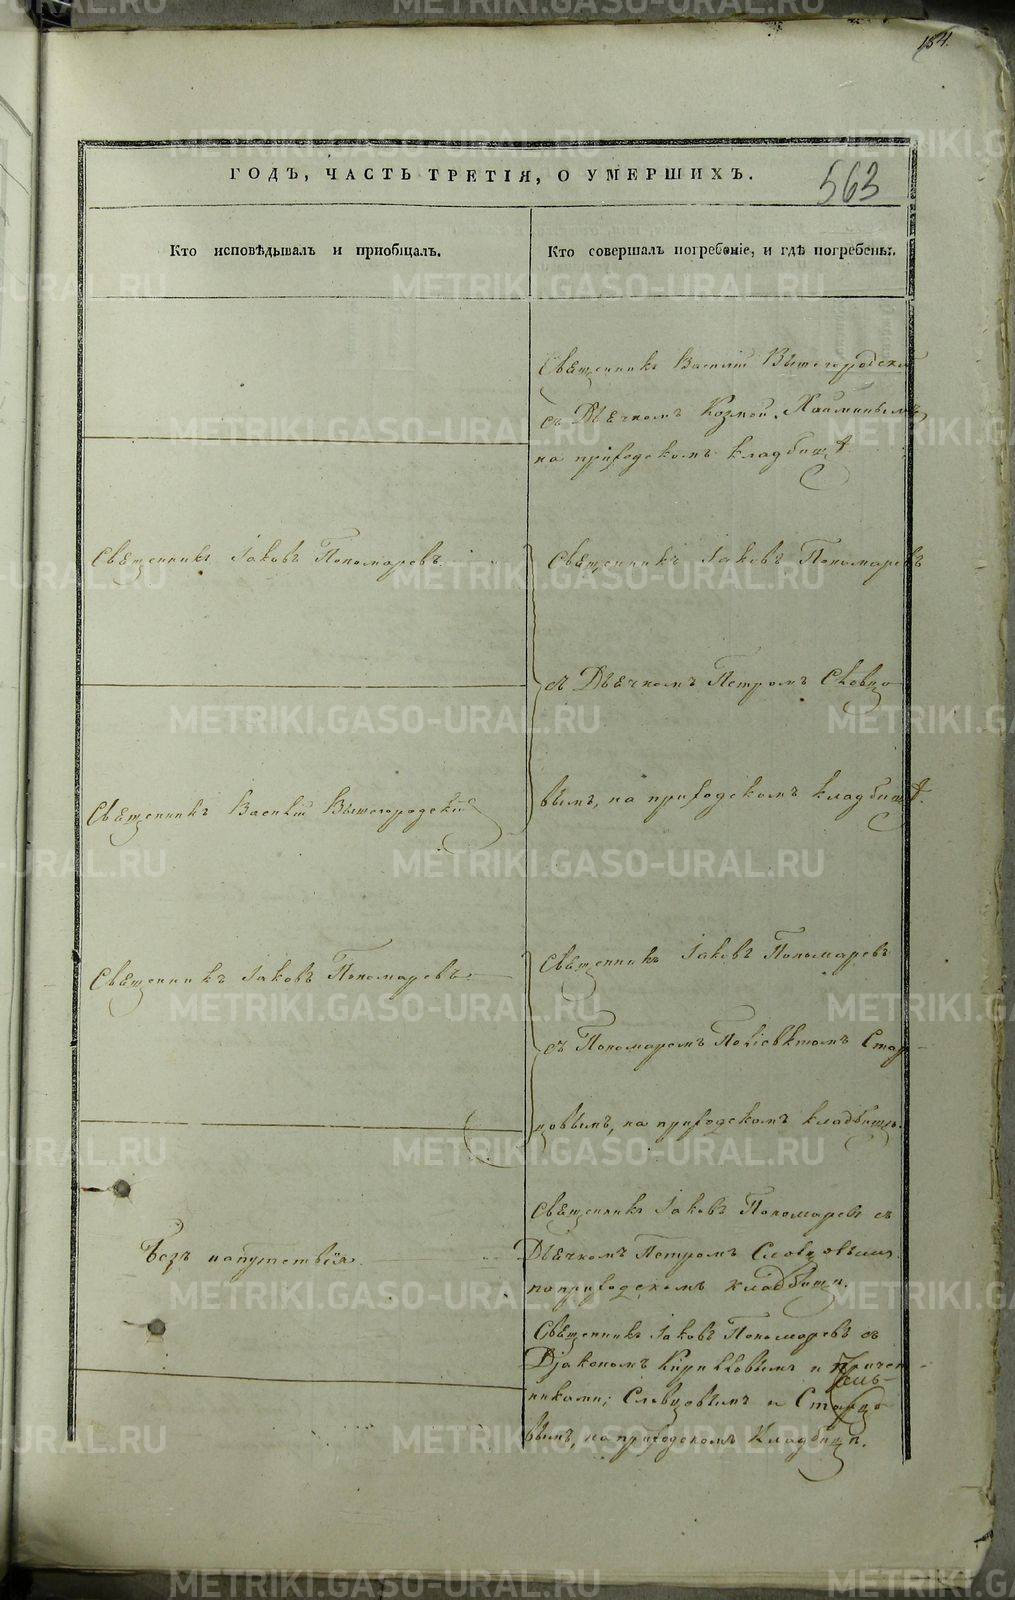 184.
ГОДЪ, ЧАСТЬ ТРЕТІЯ, О УМЕРШИХЪ.
563
Кто исповѣдывалъ и пріобщалъ.
Кто совершалъ погребеніе, и гдѣ погребены.
Священникъ Василій Вышегородскій
съ Дьячкомъ Козмой
на приходскомъ кладбищѣ
Священникъ Іаковъ Пономаревъ
Священникъ Іаковъ Пономаревъ
съ Дьячкомъ Петромъ Словцо
Священникъ Василій Вышегородскій
вымъ, на приходскомъ кладбищѣ.
Священникъ Іаковъ Пономаревъ
Священникъ Іаковъ Пономаревъ
съ Пономаремъ Поліевктомъ Стар-
цовымъ, на приходскомъ кладбищѣ.
Безъ напутствія.
Священникъ Іаковъ Пономаревъ съ
Дьячкомъ Петромъ Словцовымъ
на приходскомъ кладбищи.
Священникъ Іаковъ Пономаревъ съ
Діакономъ Кирилловымъ и причет-
никами; Словцовымъ и Старцо
вымъ, на приходскомъ кладбищи.
METRIKI.GASO-URAL.RU